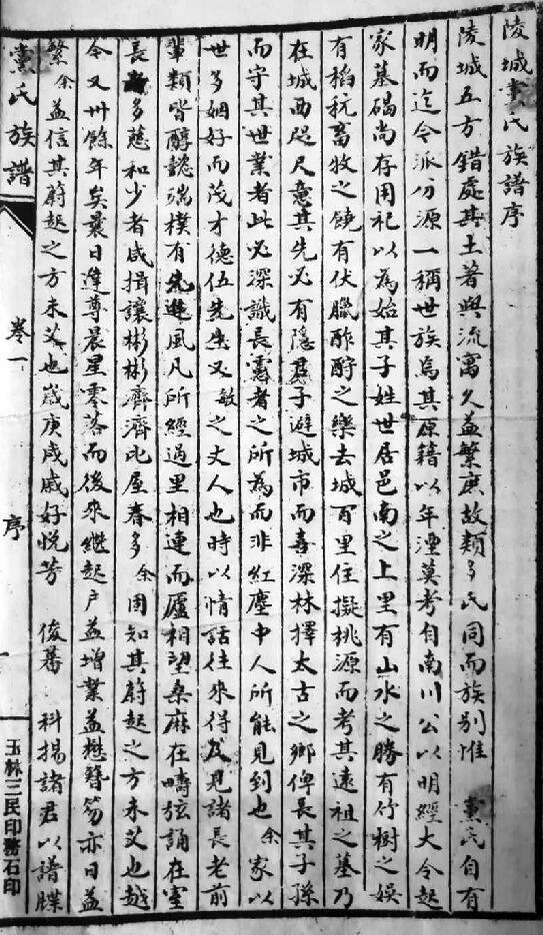 陵城黨氏族譜序
陵城五方錯處其土著與流寓久益繁庶故類多氏同而族別惟 黨氏自有
明而迄今派分源一稱世族焉其原籍以年湮莫考自南川公以明經大令起
家墓碣尚存用祀以為始其子姓世居邑南之上里有山水之勝有竹樹之娛
有稻秔畜牧之饒有伏臘酢酧之樂去城百里住擬桃源而考其遠祖之墓乃
在城西咫尺意其先必有隱君子避城市而喜深林擇太古之鄉俾長其子孫
而守其世業者此必深識長慮者之所為而非紅塵中人所能見到也余家以
世多姻好而茂才德伍先生又敏之丈人也時以情話往來得及見諸長老前
輩類皆醇懿端樸有先進風凡所經過里相連而廬相望桑麻在疇弦誦在室
長多慈和少者咸揖讓彬彬濟濟比屋春多余固知其蔚起之方未艾也越
今又卅餘年矣曩日達尊晨星零落而後來繼起户益增業益懋簪笏亦日益
繁余益信其蔚起之方未艾也歲庚戌戚好悅芳 俊蕃 科揚諸君以譜牒
黨氏族譜 卷一 序 玉林三民印務石印